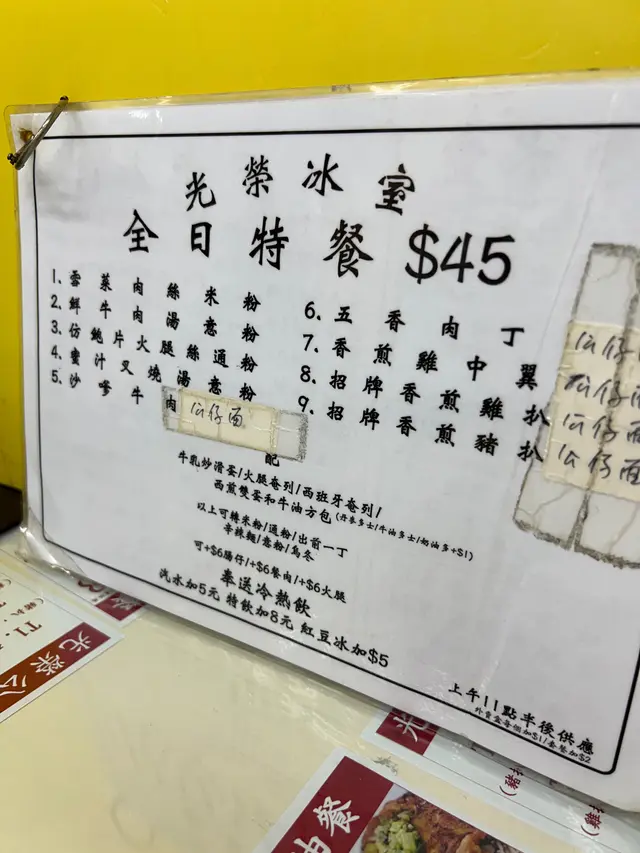 光榮冰室
全日特餐 $45
1. 雪菜肉絲米粉
2. 鮮牛肉湯意粉
3. 仿鮑片火腿絲通粉
4. 蜜汁叉燒湯意粉
5. 沙嗲牛肉公仔面
6. 五香肉丁
7. 香煎雞中翼
8. 招牌香煎雞扒
9. 招牌香煎豬扒
公仔
公仔面
公仔面
公仔面
配
牛乳炒滑蛋/火腿奄列/西班牙奄列/
西煎雙蛋和牛油方包(丹麥多士/牛油多士/奶油多+$1)
以上可轉米粉/通粉/出前一丁
辛辣麵/意粉/烏冬
可+$6腸仔/+$6餐肉/+$6火腿
奉送冷熱飲
汽水加5元 特飲加8元 紅豆冰加$5
上午11點半後供應
外賣盒每個加$1/套餐加$2
光榮公
油餐
光